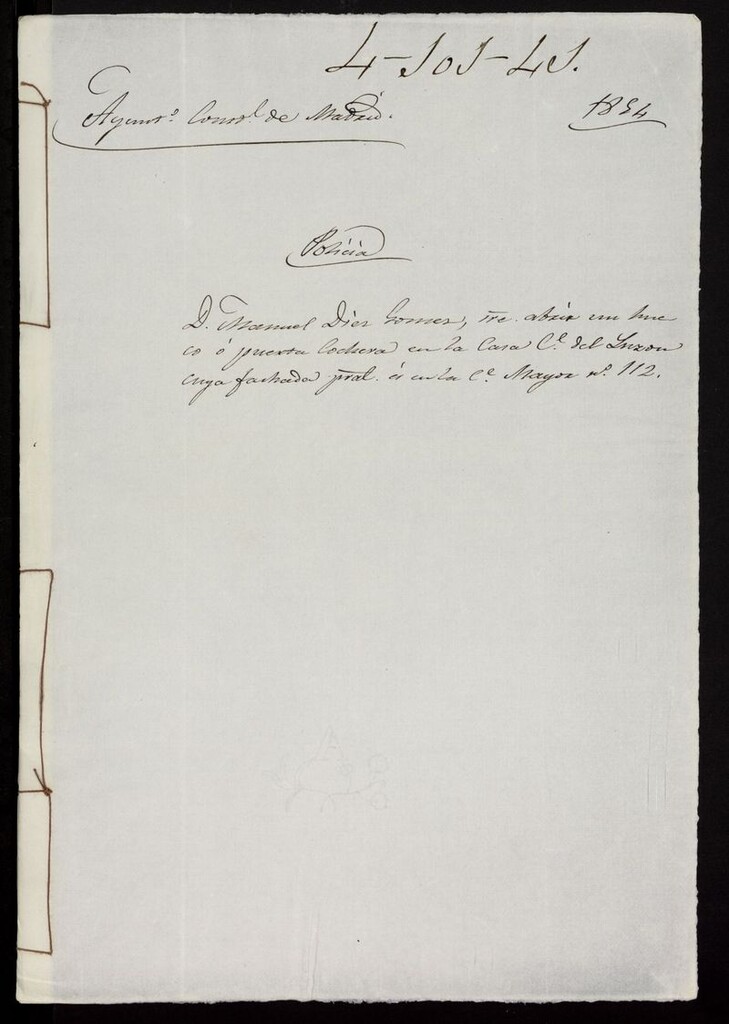 4-101-41.
Ayunt.º Const.l de Madrid.
1854
Policia
D. Manuel Diez Gomez, sre. abrir un hue
co ó puerta cochera en la Casa C.e del Luzon
cuya fachada pral. és en la C.e Mayor n.º 112.